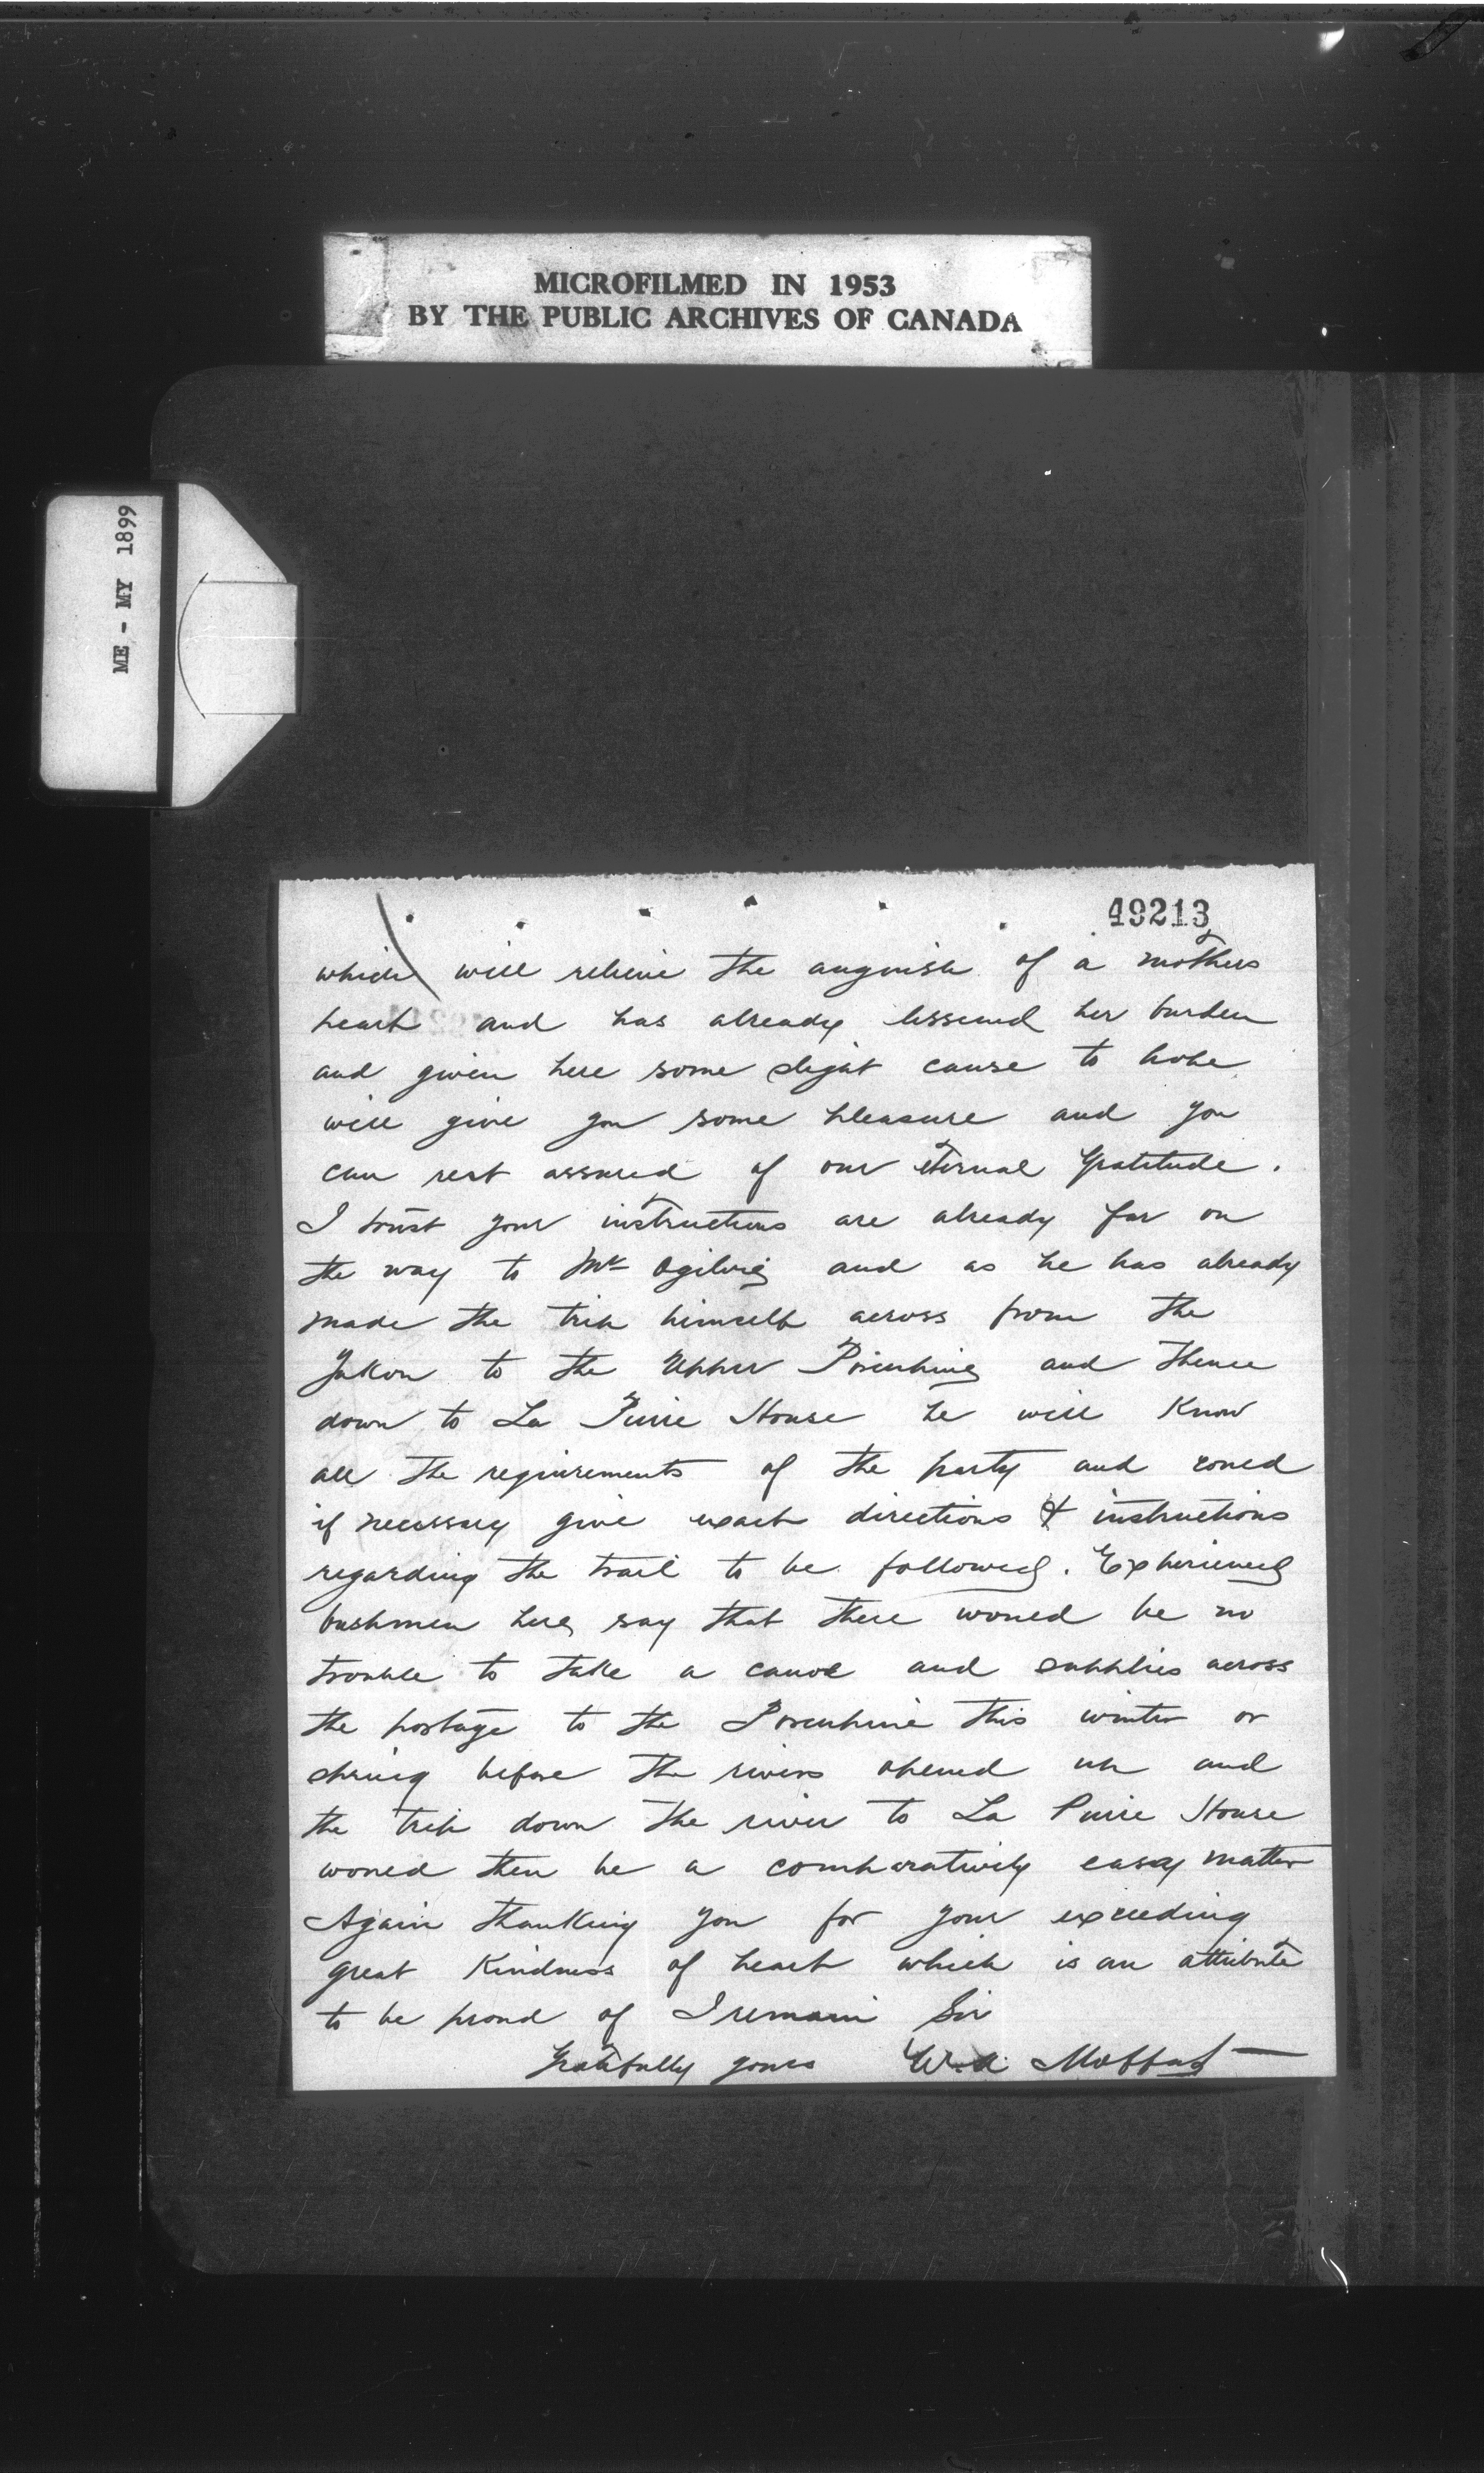 MICROFILMED IN 1953
BY THE PUBLIC ARCHIVES OF CANADA
ME - MY 1899
49213
which will relieve the anguish of a mothers
heart and has already lessened her burden
and given here some slight cause to hope
will give you some pleasure and you
can rest assured of our eternal gratitude.
I trust your instructions are already far on
the way to Mr Ogilvie and as he has already
made the trip himself across from the
Yukon to the Upper Porcupine and thence
down to La Pierre House he will know
all the requirements of the party and could
if necessary give exact directions & instructions
regarding the trail to be followed. Experienced
bushmen here say that there would be no
trouble to take a canoe and supplies across
the portage to the Porcupine this winter or
spring before the rivers opened up and
the trip down the river to La Pierre House
would then be a comparatively easy matter
Again thanking you for your exceeding
great kindness of heart which is an attribute
to be proud of I remain Sir
Gratefully yours W.A. Moffat